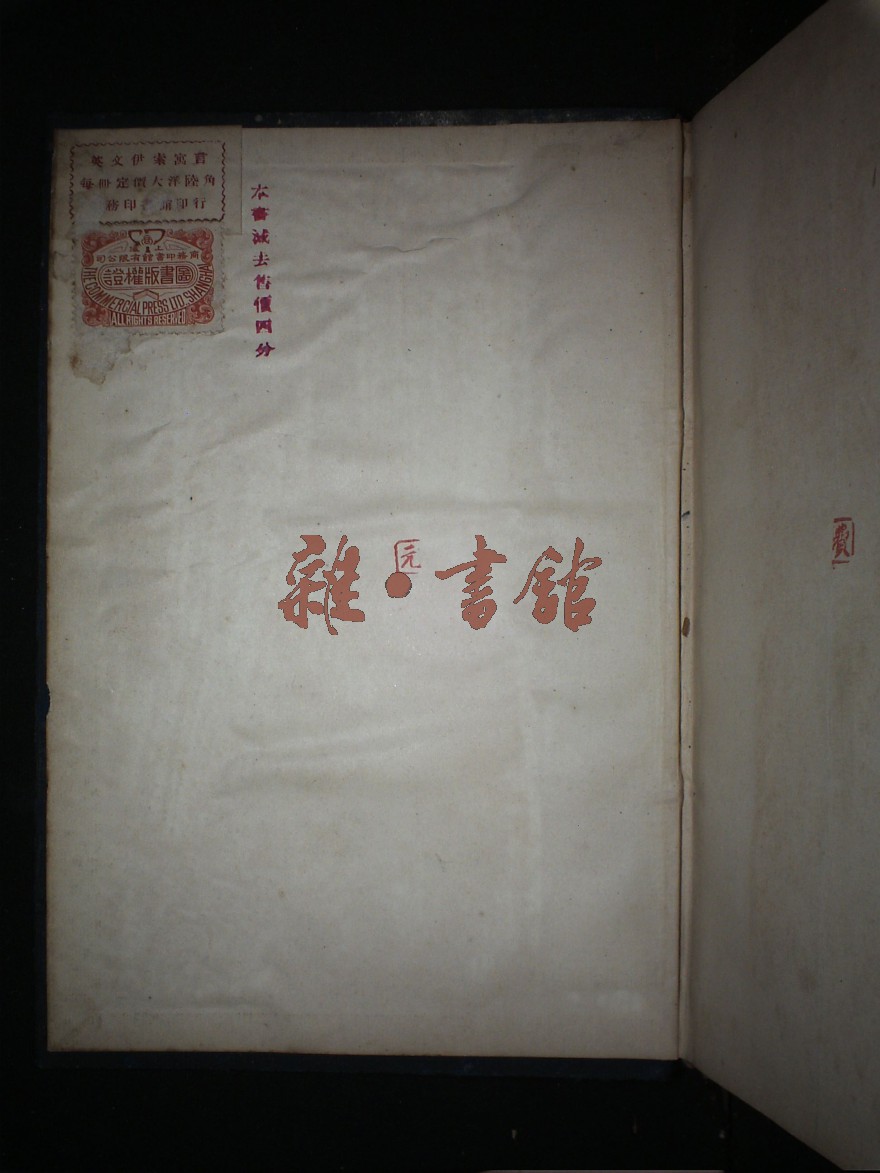 英文伊索寓言
每冊定價大洋陸角
務印書館印行
商務印書館有限公司
圖書版權證
THE COMMERCIAL PRESS LTD. SHANGHAI
ALL RIGHTS RESERVED
本書減去售價四分
元
雜·書館
費